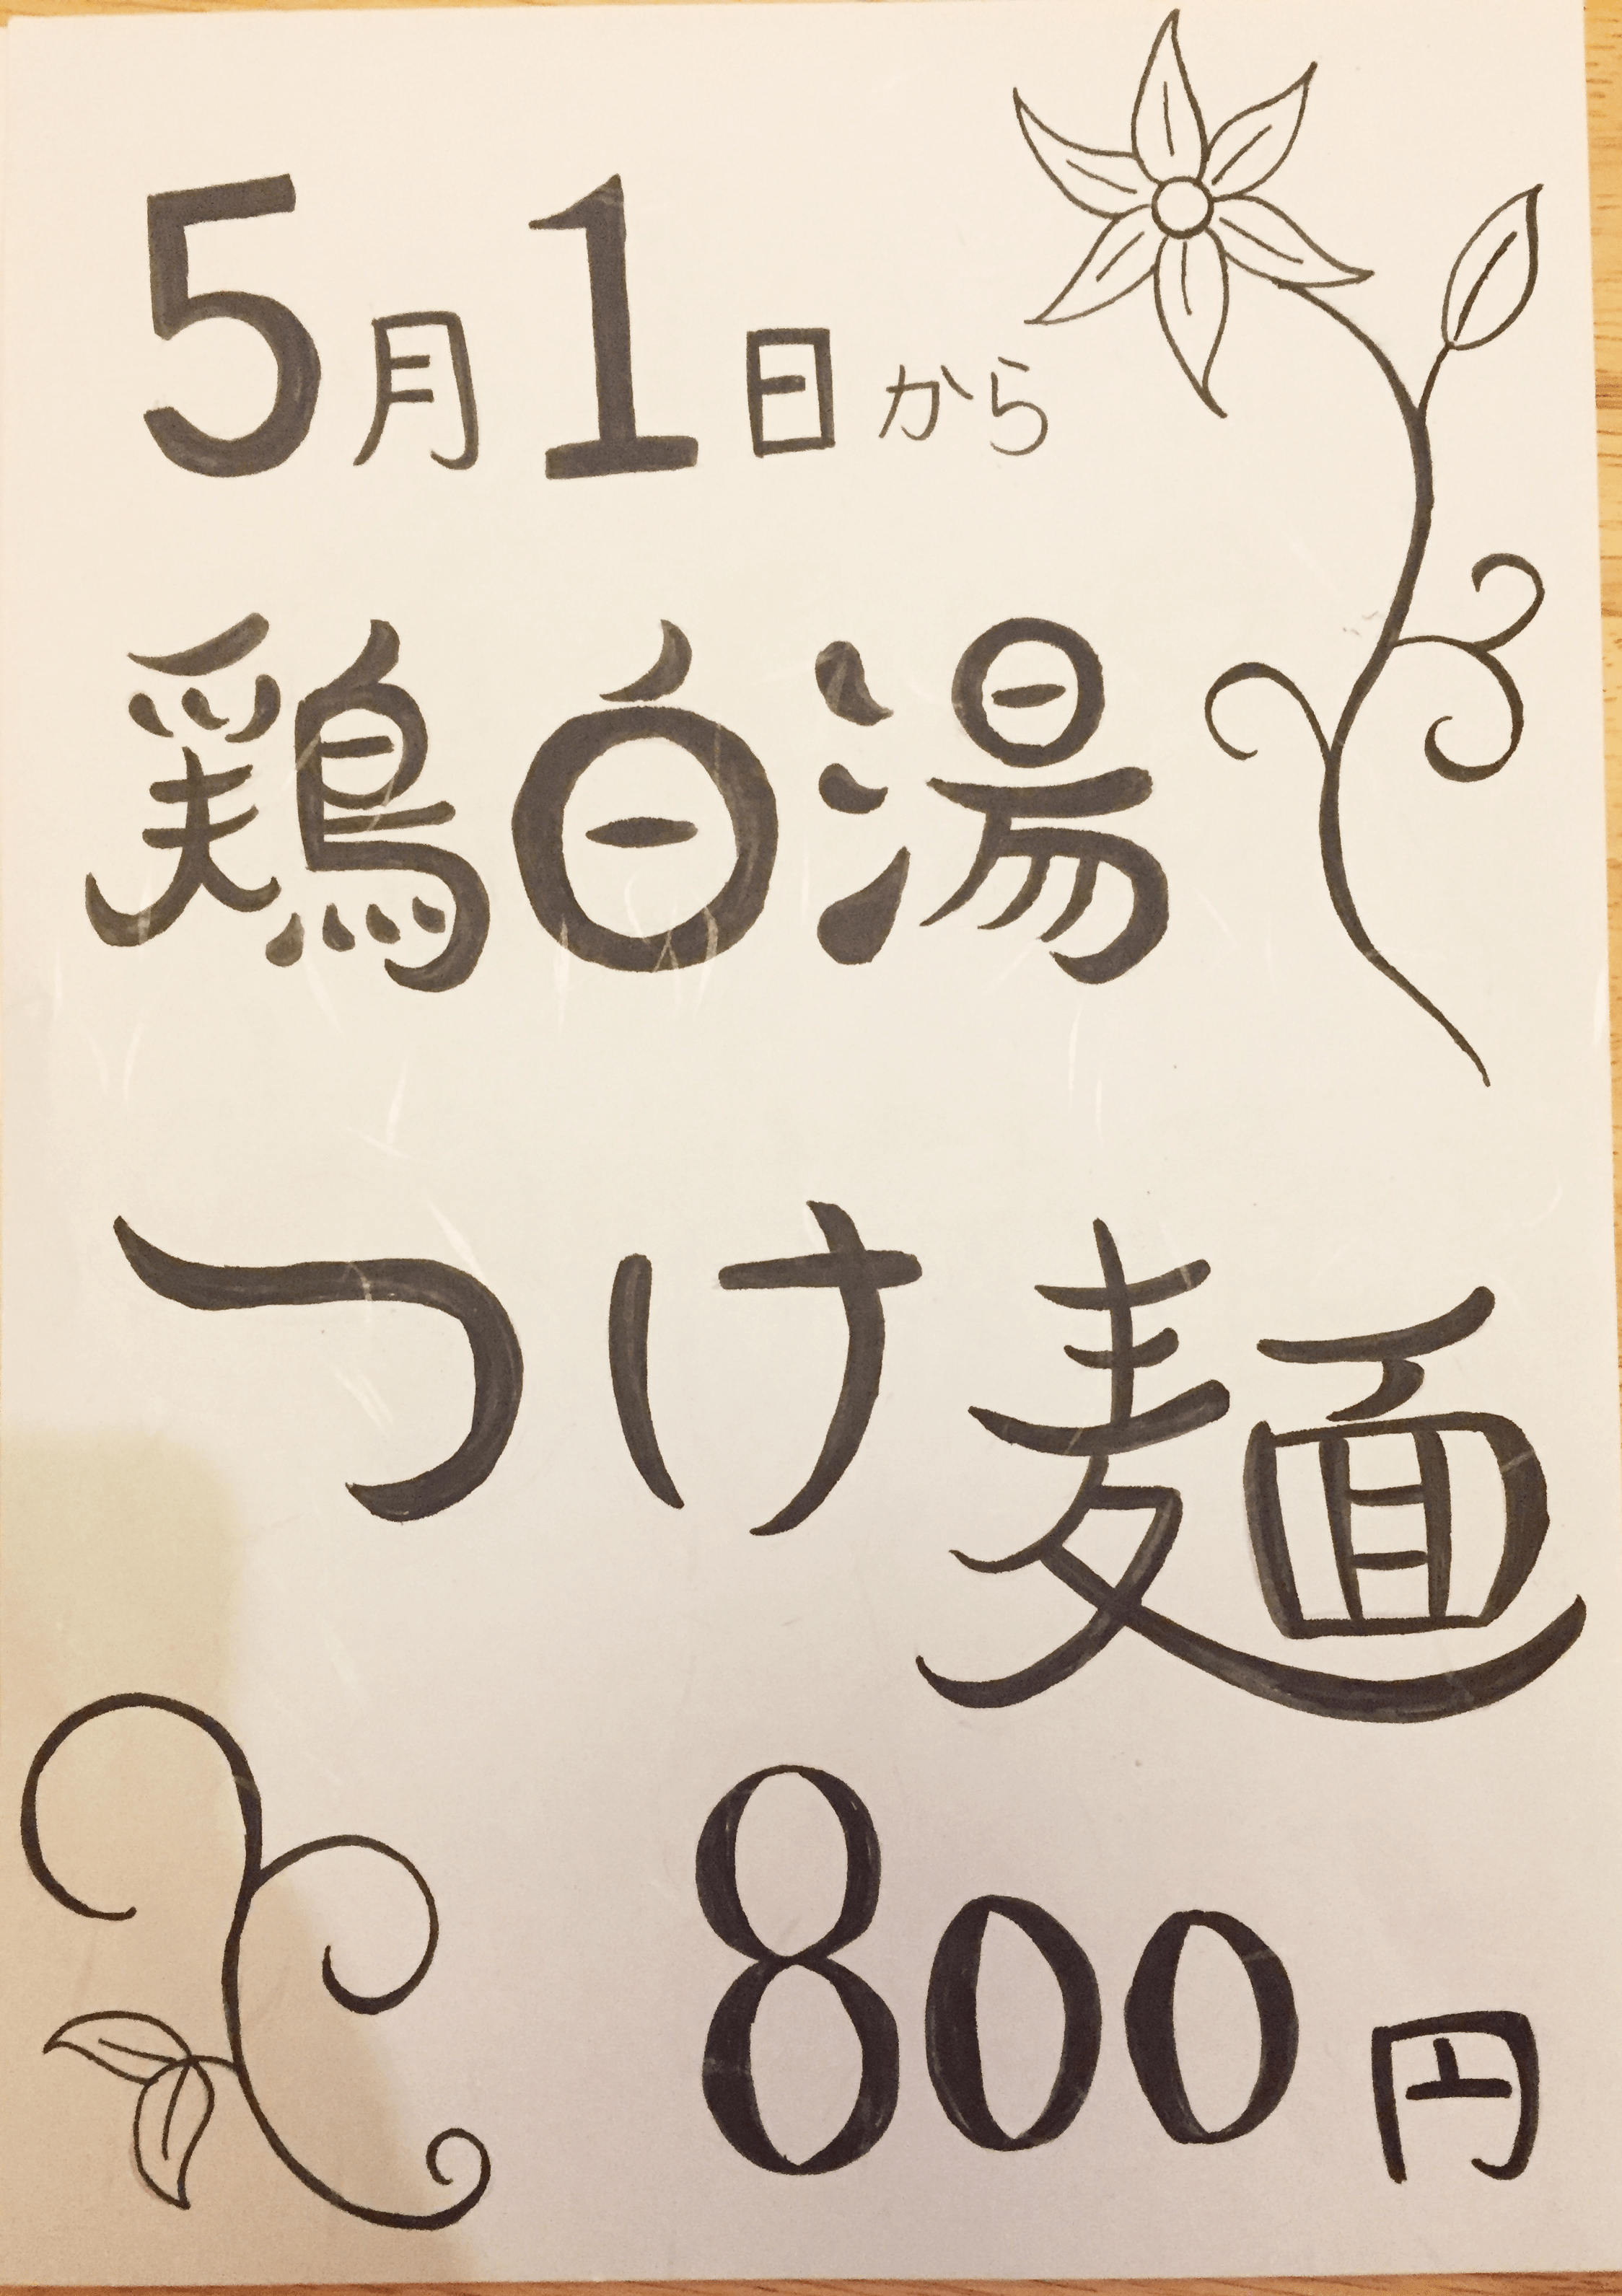 5月1日から
鶏白湯
つけ麺
800円